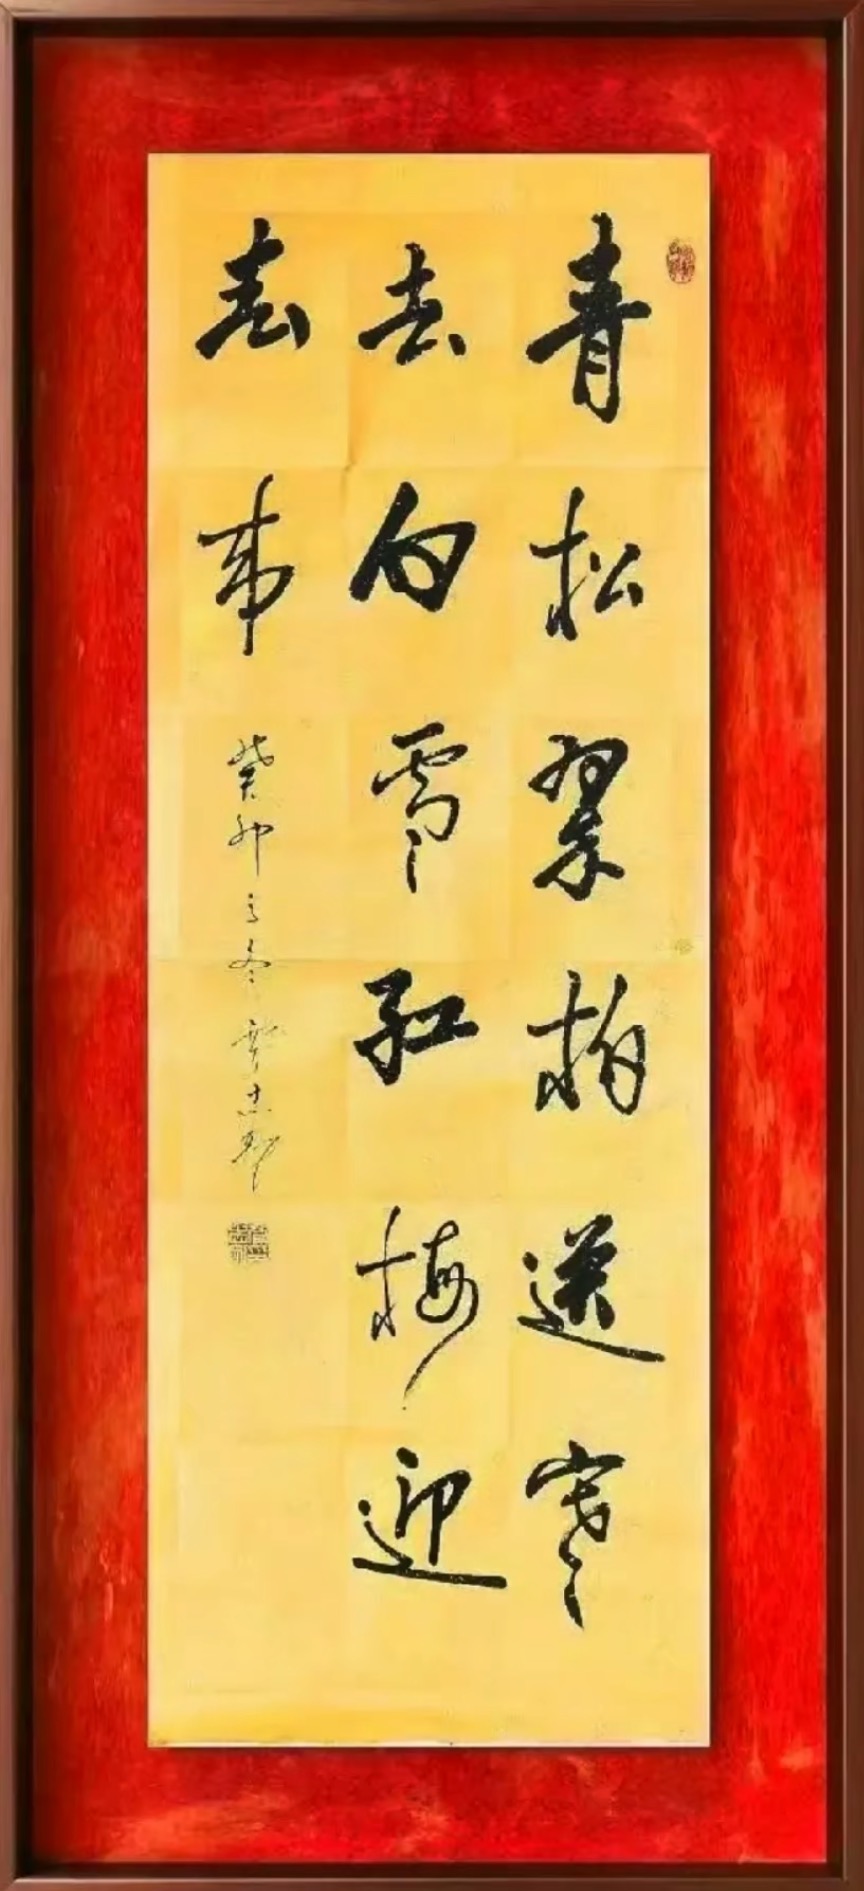 青松翠柏送寒
去白雪红梅迎
春来 癸卯之冬